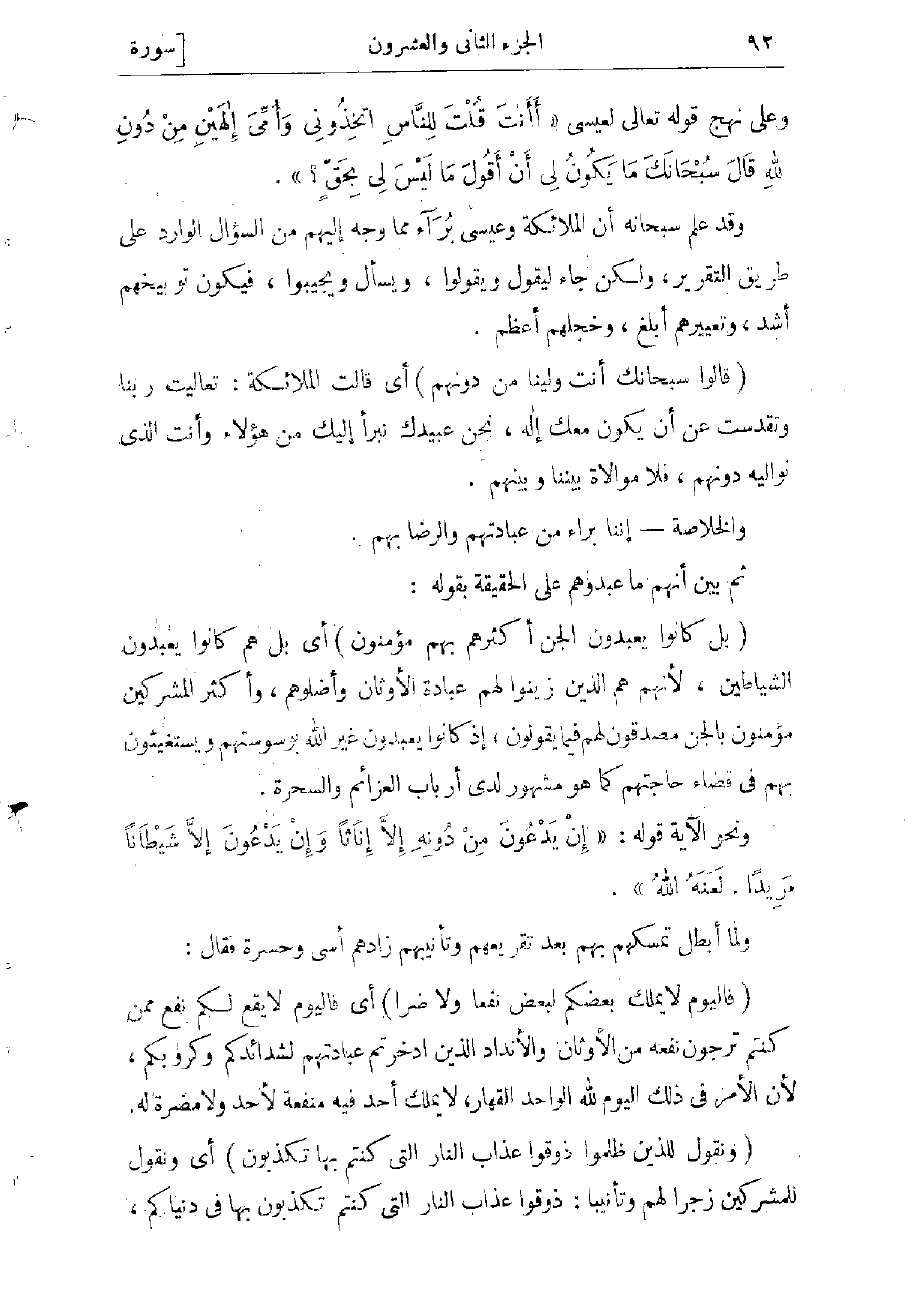 ٩٢ الجزء الثانى والعشرون [سورة
وعلى نهج قوله تعالى لعيسى « أَأَنتَ قُلْتَ لِلنَّاسِ اتخِذُونِى وَأُمِّىَ إِلٰهَيْنِ مِنْ دُونِ
للهِ قَالَ سُبْحَانَكَ مَا يَكُونُ لِى أَنْ أَقُولَ مَا لَيْسَ لِى بِحَقٍّ ؟ » .
وقد علم سبحانه أن الملائكة وعيسى بُرَآء مما وجه إليهم من السؤال الوارد على
طريق التقرير ، ولكن جاء ليقول ويقولوا ، ويسأل ويجيبوا ، فيكون توبيخهم
أشد ، وتعييرهم أبلغ ، وخجلهم أعظم .
( قالوا سبحانك أنت ولينا من دونهم ) أى قالت الملائكة : تعاليت ربنا
وتقدست عن أن يكون معك إله ، نحن عبيدك نبرأ إليك من هؤلاء وأنت الذى
نواليه دونهم ، فلا موالاة بيننا وبينهم .
والخلاصة — إننا براء من عبادتهم والرضا بهم .
ثم بين أنهم ما عبدوهم على الحقيقة بقوله :
( بل كانوا يعبدون الجن أكثرهم بهم مؤمنون ) أى بل هم كانوا يعبدون
الشياطين ، لأنهم هم الذين زينوا لهم عبادة الأوثان وأضلوهم ، وأكثر المشركين
مؤمنون بالجن مصدقون لهم فيما يقولون ، إذ كانوا يعبدون غير الله بوسوستهم ويستغيثون
بهم فى قضاء حاجتهم كما هو مشهور لدى أرباب العزائم والسحرة .
ونحو الآية قوله : « إِنْ يَدْعُونَ مِنْ دُونِهِ إِلاَّ إِنَاثًا وَإِنْ يَدْعُونَ إِلاَّ شَيْطَانًا
مَرِيدًا . لَعَنَهُ اللهُ » .
ولما أبطل تمسكهم بهم بعد تقريعهم وتأنيبهم زادهم أسى وحسرة فقال :
( فاليوم لا يملك بعضكم لبعض نفعا ولا ضرا ) أى فاليوم لا يقع لكم نفع ممن
كنتم ترجون نفعه من الأوثان والأنداد الذين ادخرتم عبادتهم لشدائدكم وكروبكم ،
لأن الأمر فى ذلك اليوم لله الواحد القهار، لا يملك أحد فيه منفعة لأحد ولا مضرة له.
( ونقول للذين ظلموا ذوقوا عذاب النار التى كنتم بها تكذبون ) أى ونقول
للمشركين زجرا لهم وتأنيبا : ذوقوا عذاب النار التى كنتم تكذبون بها فى دنياكم ،